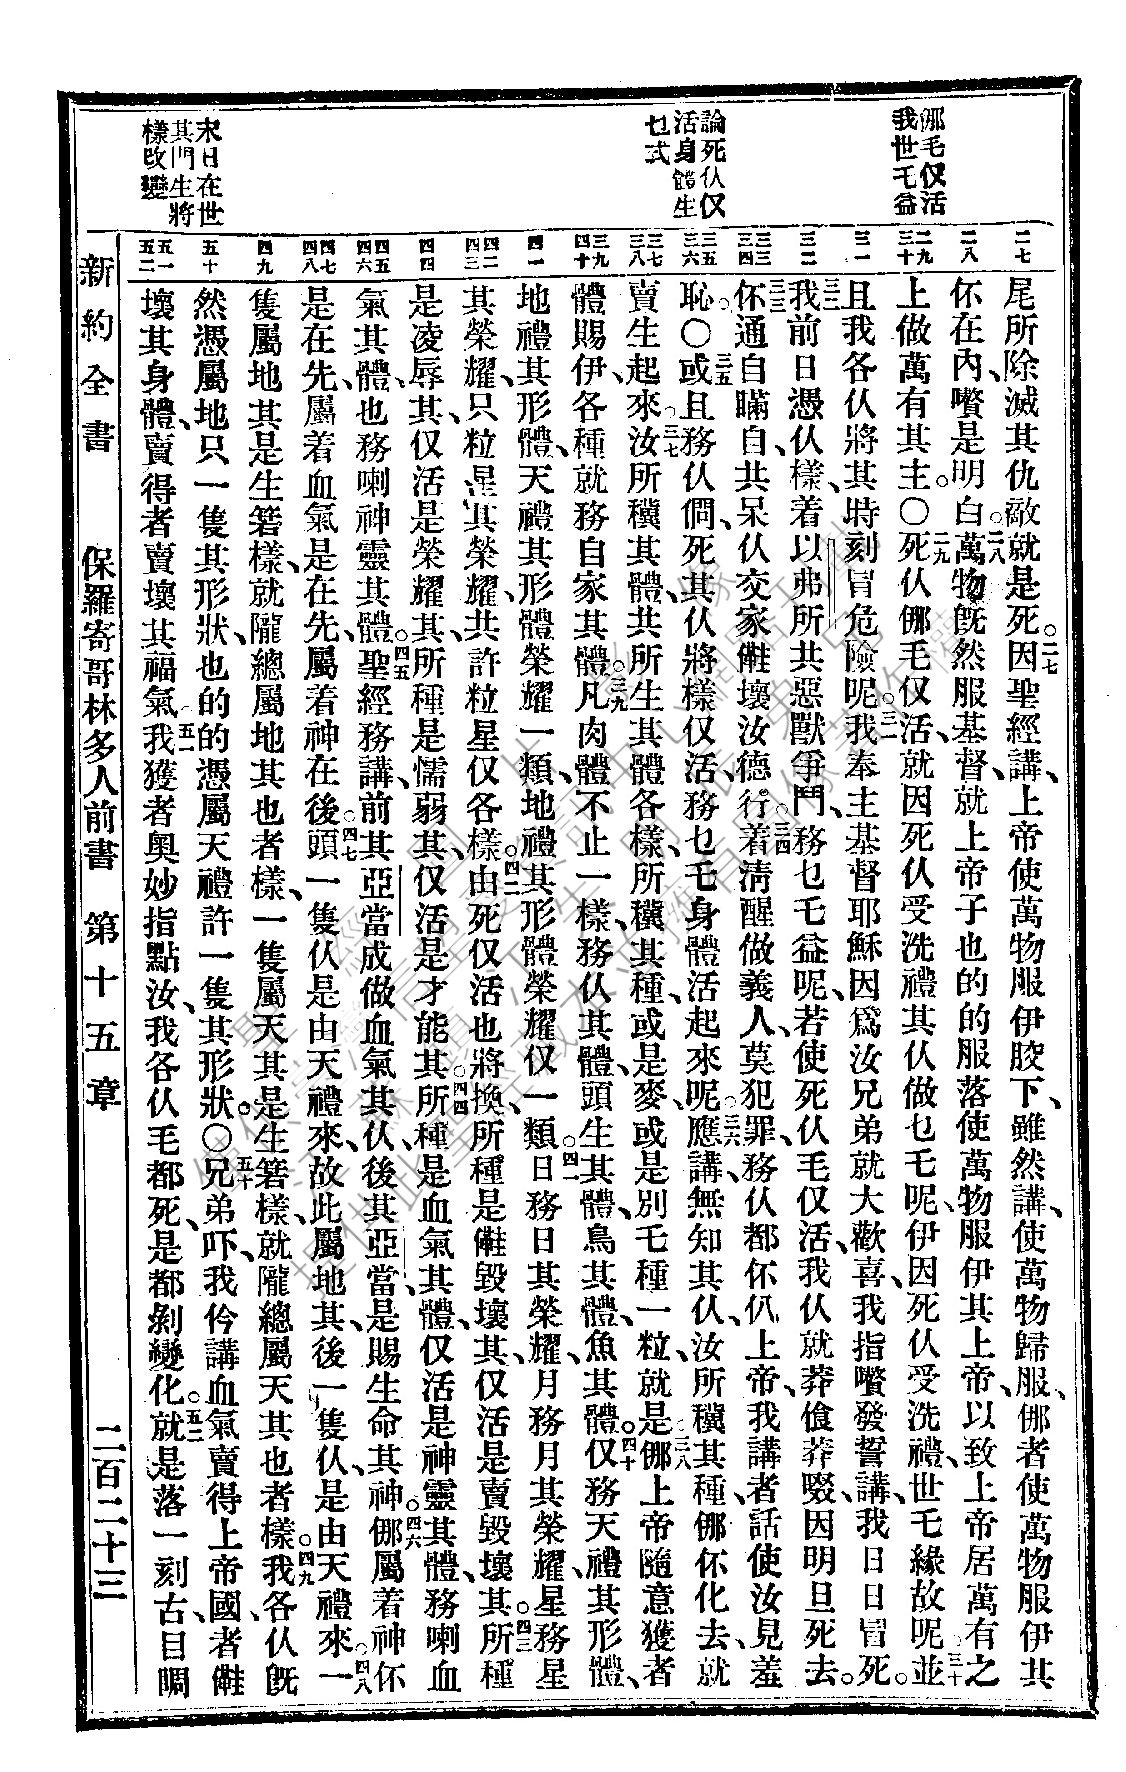 㑚毛仅活
我世乇益
論死仈仅
活身體生
乜式
末日在世
其門生將
樣改變
二七
二八
二九
三十
三一
三二
三三
三四
三五
三六
三七
三八
三九
四十
四一
四二
四三
四四
四五
四六
四七
四八
四九
五十
五一
五二
尾所除滅其仇敵就是死。二七因聖經講、上帝使萬物服伊骹下、雖然講、使萬物歸服、㑚者使萬物服伊其
伓在內、嚽是明白。二八萬物旣然服基督、就上帝子也的的服落使萬物服伊其上帝、以致上帝居萬有之
上做萬有其主。○二九死仈㑚毛仅活、就因死仈受洗禮其仈做乜乇呢、伊因死仈受洗禮、世乇緣故呢。三十並
且我各仈將其時刻冒危險呢。三一我奉主基督耶穌因爲汝兄弟就大歡喜、我指嚽發誓講、我日日冒死。
三二我前日憑仈樣、着以弗所共惡獸爭鬥、務乜乇益呢、若使死仈毛仅活、我仈就莽飧莽啜、因明旦死去。
三三伓通自瞞自、共呆仈交家、㑨壞汝德行。三四着清醒做義人、莫犯罪、務仈都伓仈上帝、我講者話使汝見羞
恥。○三五或且務仈倜、死其仈將樣仅活、務乜乇身體活起來呢。三六應講、無知其仈、汝所穬其種、㑚伓化去、就
賣生起來。三七汝所穬其體、共所生其體各樣、所穬其種、或是麥、或是別乇種一粒、就是㑚。三八上帝隨意獲者
體賜伊、各種就務自家其體。三九凡肉體不止一樣、務仈其體、頭生其體、鳥其體、魚其體。四十仅務天禮其形體、
地禮其形體、天禮其形體榮耀一類、地禮其形體榮耀仅一類。四一日務日其榮耀、月務月其榮耀、星務星
其榮耀、只粒星其榮耀、共許粒星仅各樣。四二由死仅活也將換、所種是㑨毀壞其、仅活是賣毀壞其。四三所種
是凌辱其、仅活是榮耀其、所種是懦弱其、仅活是才能其。四四所種是血氣其體、仅活是神靈其體、務喇血
氣其體、也務喇神靈其體。四五聖經務講、前其亞當成做血氣其仈、後其亞當是賜生命其神。四六㑚屬着神伓
是在先、屬着血氣是在先、屬着神在後。四七頭一隻仈是由天禮來、故此屬地其、後一隻仈、是由天禮來。四八一
隻屬地其是生箬樣、就隴總屬地其也者樣、一隻屬天其是生箬樣、就隴總屬天其也者樣。四九我各仈旣
然憑屬地只一隻其形狀、也的的憑屬天禮許一隻其形狀。○五十兄弟吓、我仱講、血氣賣得上帝國、者㑨
壞其身體、賣得者賣壞其福氣。五一我獲者奧妙指點汝、我各仈毛都死、是都剝變化。五二就是落一刻古、目睭
新約全書　保羅寄哥林多人前書　第十五章　二百二十三